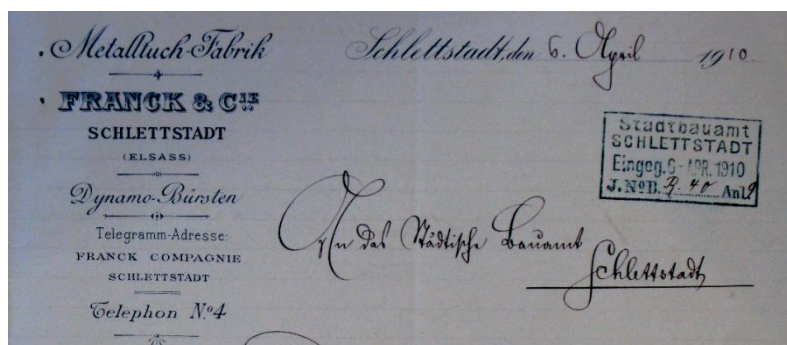 Metalltuch-Fabrik
FRANCK & CIE
SCHLETTSTADT
(ELSASS)
Dynamo-Bürsten
Telegramm-Adresse:
FRANCK COMPAGNIE
SCHLETTSTADT
Telephon No. 4
Schlettstadt, den 6. April 1910
Stadtbauamt
SCHLETTSTADT
Eingeg. 6- APR. 1910
J. No B. 40 Anl.
An das Städtische Bauamt
Schlettstadt